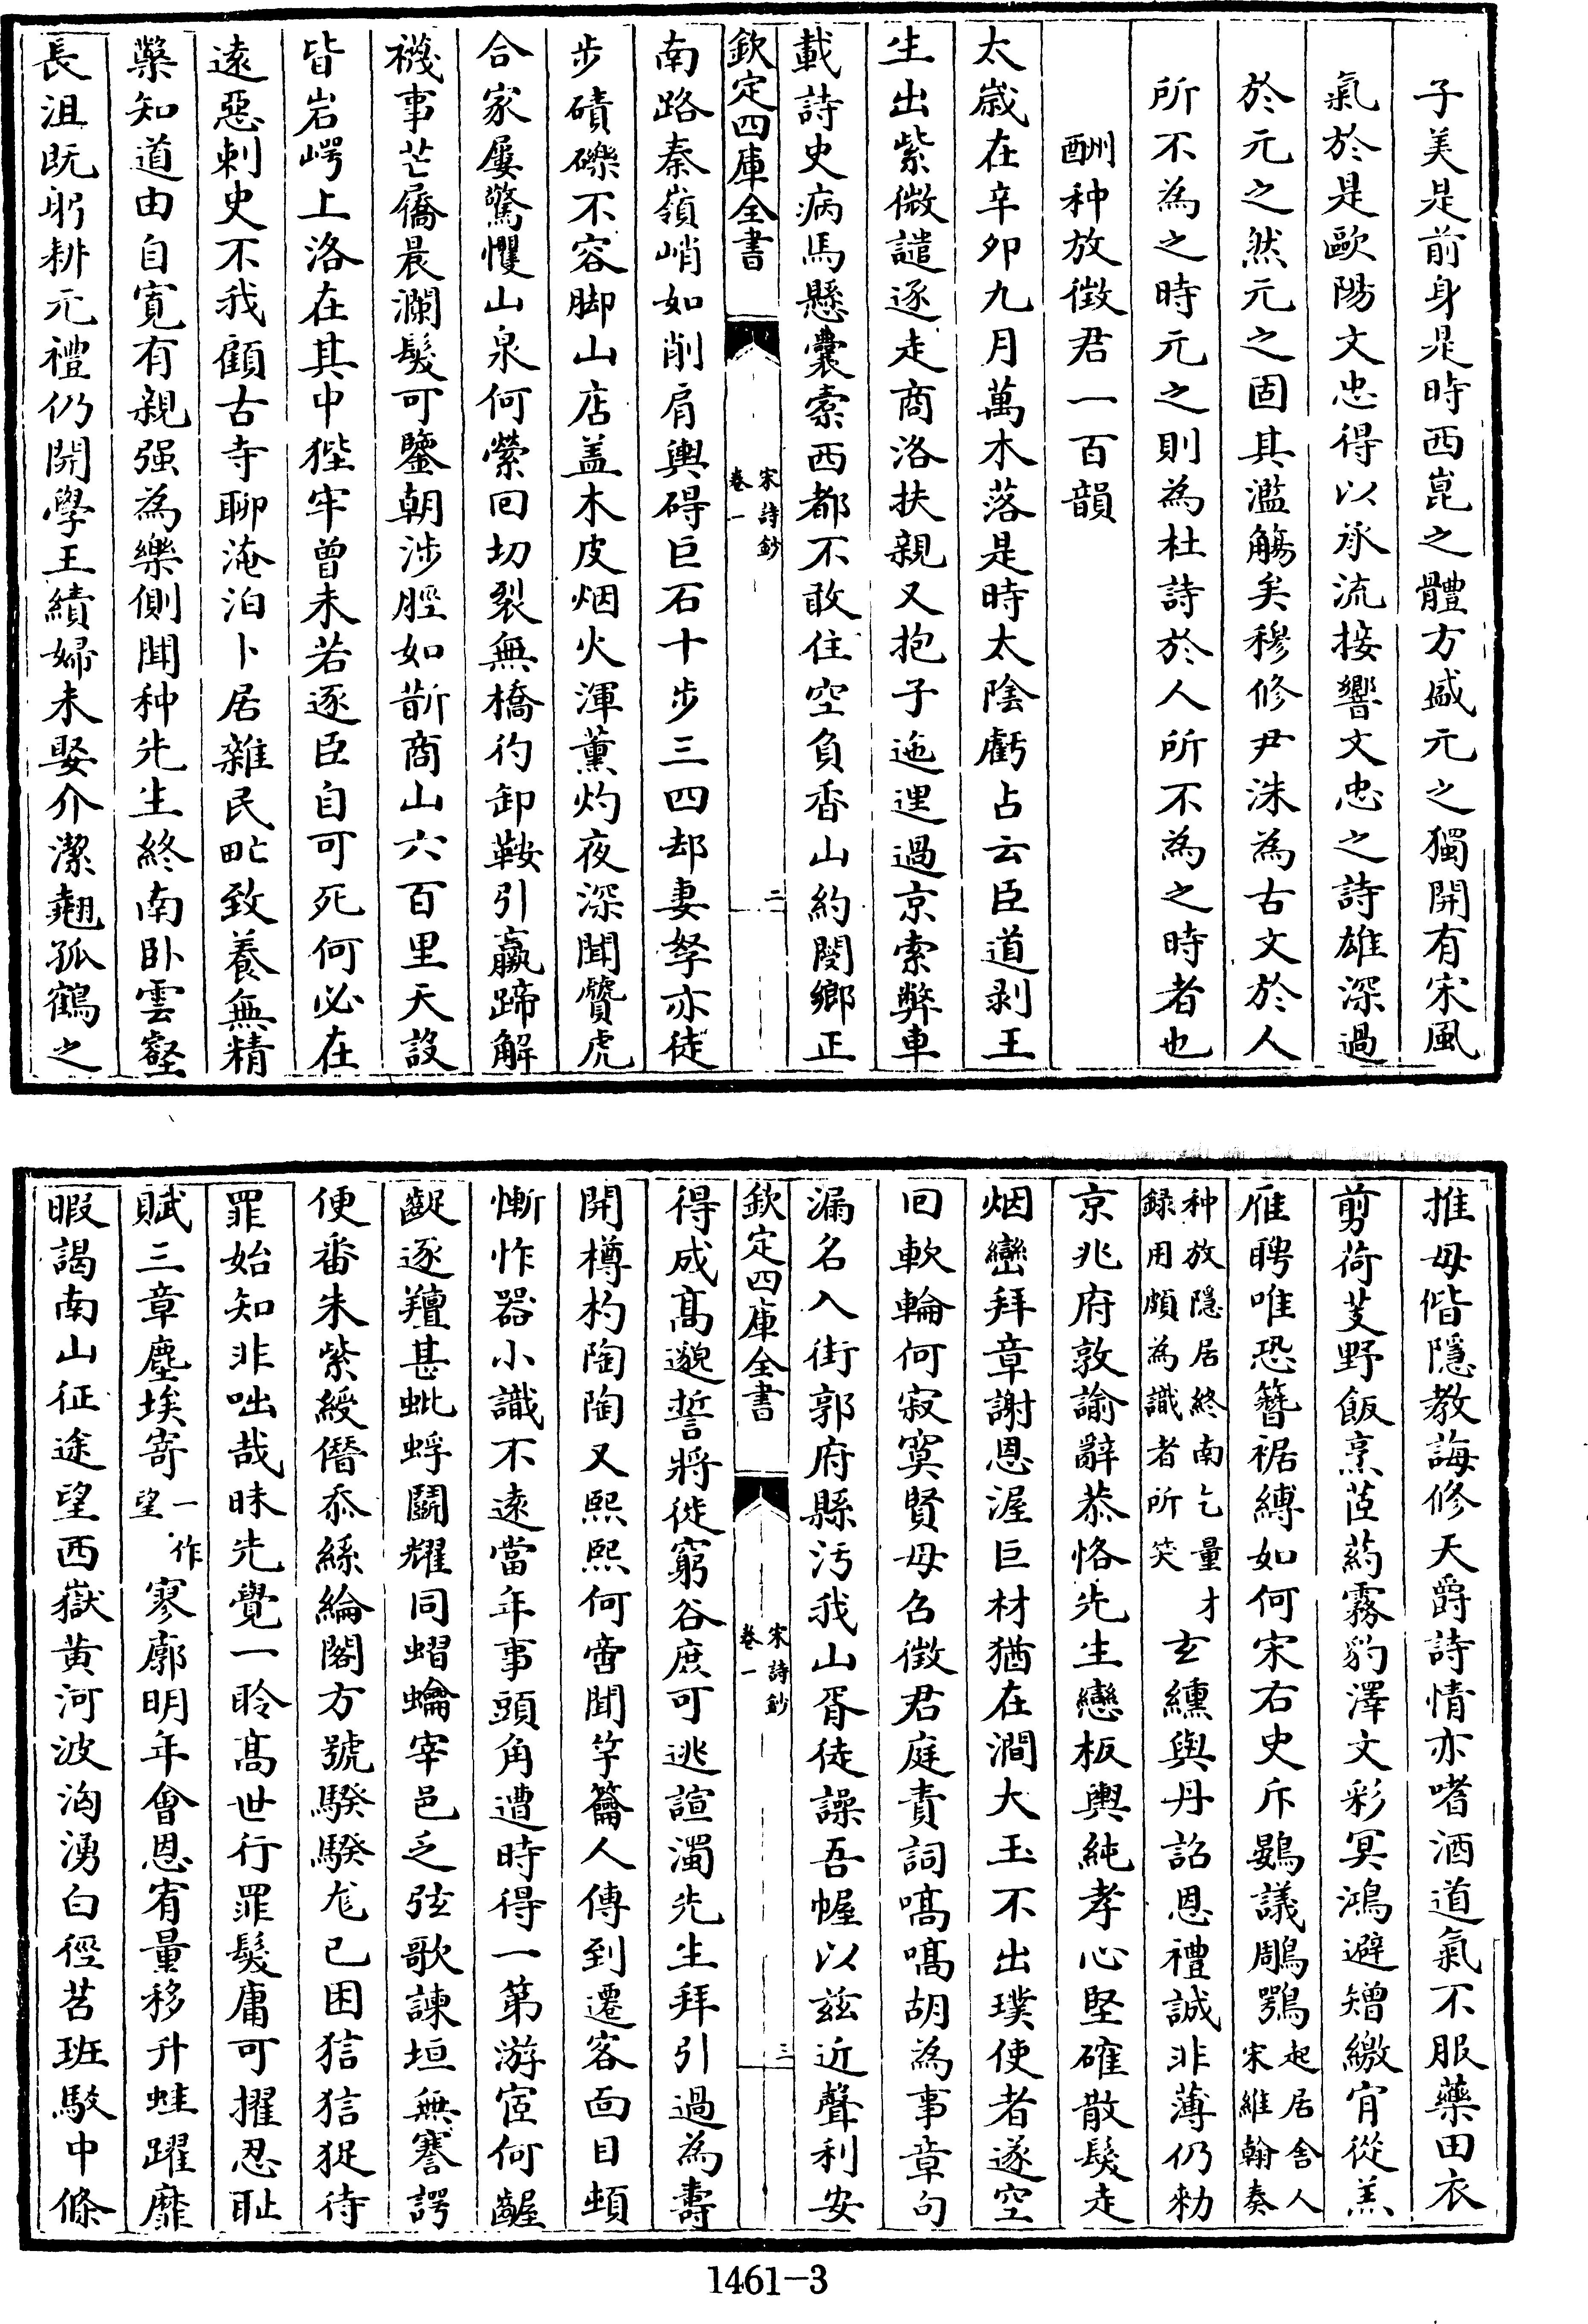 子美是前身是時西崑之體方盛元之獨開有宋風
氣於是歐陽文忠得以承流接響文忠之詩雄深過
於元之然元之固其濫觴矣穆修尹洙為古文於人
所不為之時元之則為杜詩於人所不為之時者也
酬种放徵君一百韻
太歲在辛卯九月萬木落是時太陰虧占云臣道剥王
生出紫微譴逐走商洛扶親又抱子迤逦過京索弊車
載詩史病馬懸囊索西都不敢住空負香山約閿鄉正
欽定四庫全書
宋詩鈔
卷一
二
南路秦嶺峭如削肩輿碍巨石十步三四却妻孥亦徒
步磧礫不容脚山店盖木皮烟火渾薰灼夜深聞贙虎
合家屢驚懼山泉何縈回切裂無橋彴卸鞍引羸蹄解
襪事芒屩晨瀾髮可鑒朝涉脛如斮商山六百里天設
皆岩崿上洛在其中狴牢曾未若逐臣自可死何必在
遠惡刺史不我顧古寺聊淹泊卜居雜民甿致養無精
藥知道由自寛有親强為樂側聞种先生終南卧雲壑
長沮既躬耕元禮仍開學王績婦未娶介潔翹孤鶴之
推母偕隱教誨修天爵詩情亦嗜酒道氣不服藥田衣
剪荷芰野飯烹茝葯霧豹澤文彩冥鴻避矰繳肯從羔
雁聘唯恐簪裾縛如何宋右史斥鷃議鵰鶚
起居舍人
宋維翰奏
种放隱居終南乞量才
録用頗為識者所笑
玄纁與丹詔恩禮誠非薄仍勑
京兆府敦諭辭恭恪先生戀板輿純孝心堅確散髮走
烟巒拜章謝恩渥巨材猶在澗大玉不出璞使者遂空
回軟輪何寂寞賢母召徵君庭責詞嗃嗃胡為事章句
漏名入街郭府縣汚我山胥徒譟吾幄以兹近聲利安
欽定四庫全書
宋詩鈔
卷一
三
得成髙邈誓將徙窮谷庶可逃諠濁先生拜引過為壽
開樽杓陶陶又熙熙何啻聞竽籥人傳到遷客面目頓
慚怍器小識不遠當年事頭角遭時得一第游宦何齷
齪逐羶甚蚍蜉鬬耀同熠爚宰邑乏弦歌諫垣無謇諤
便番朱紫綬僭忝絲綸閣方號騤騤尨已困狺狺捉待
罪始知非咄哉昧先覺一聆髙世行罪髮庸可擢忍恥
賦三章塵埃寄
一作
望
寥廓明年會恩宥量移升蛙躍靡
暇謁南山征途望西嶽黄河波洶湧白徑苔班駮中條
1461-3